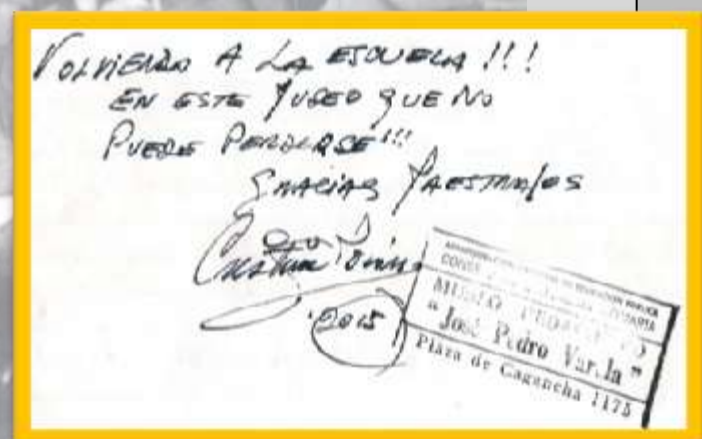 VOLVIENDO A LA ESCUELA !!!
EN ESTE MUSEO QUE NO
PUEDE PERDERSE!!!
GRACIAS MAESTRAS/OS
2015
ADMINISTRACION NACIONAL DE EDUCACION PUBLICA
MUSEO PEDAGOGICO
"José Pedro Varela"
Plaza de Cagancha 1175